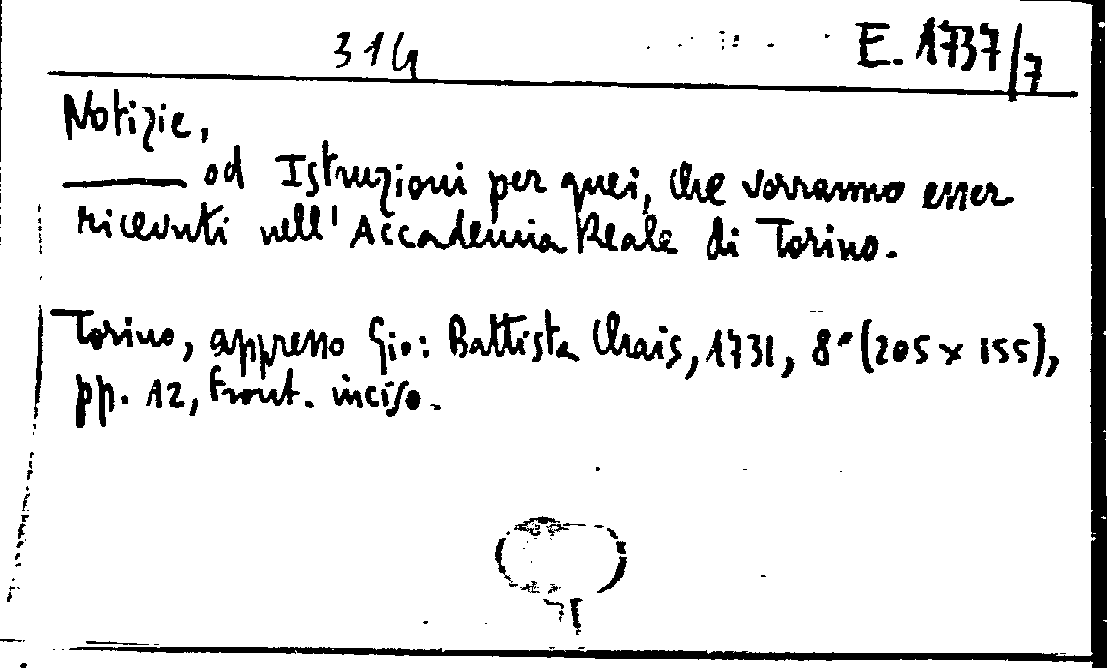 314 E. 1737/7
Notizie,
——— od Istruzioni per quei, che vorranno esser
ricevuti nell'Accademia Reale di Torino.
Torino, appresso Gio: Battista Chais, 1731, 8° (205 x 155),
pp. 12, front. inciso.